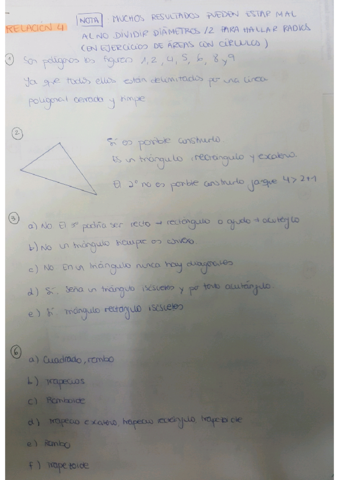 RELACIÓN 4
NOTA MUCHOS RESULTADOS PUEDEN ESTAR MAL
AL NO DIVIDIR DIÁMETROS /2 PARA HALLAR RADIOS
(EN EJERCICIOS DE ÁREAS CON CÍRCULOS)
① Son polígonos las figuras 1, 2, 4, 5, 6, 8 y 9
Ya que todas ellas están delimitadas por una línea
poligonal cerrada y simple
② Sí es posible construirlo
Es un triángulo rectángulo y escaleno
El 2º no es posible construirlo porque 4 > 2+1
a) No. El podría ser recto → rectángulo o agudo → acutángulo
b) No un triángulo siempre es convexo
c) No En un triángulo nunca hay diagonales
d) Sí. Sería un triángulo isósceles y por tanto acutángulo
e) Sí. triángulo rectángulo isósceles
⑥ a) Cuadrado, rombo
b) trapecios
c) Romboide
d) trapecio escaleno trapecio rectángulo trapezoide
e) Rombo
f) trapezoide